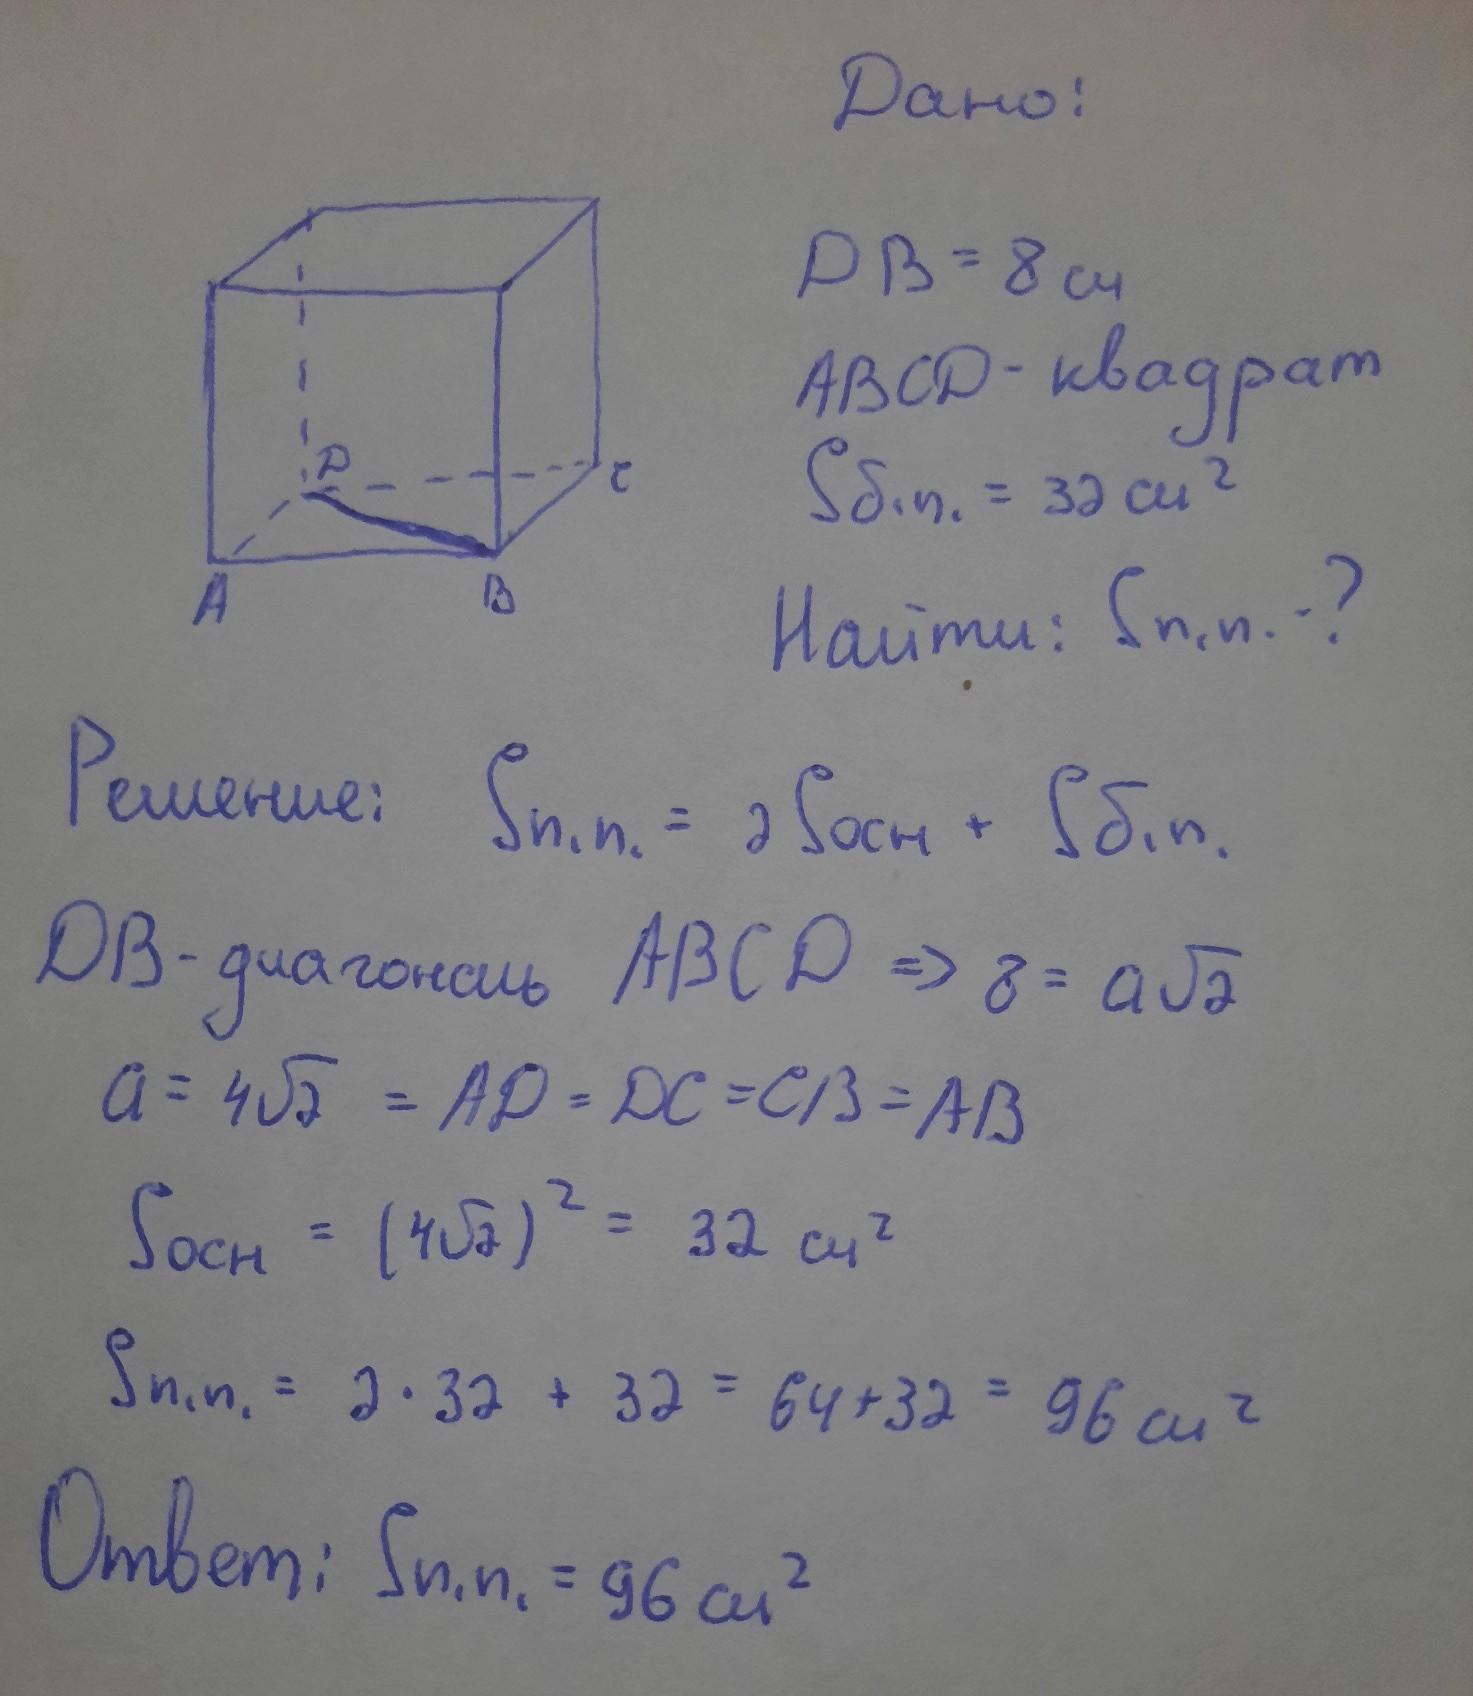 Дано:
DB = 8 см
ABCD - квадрат
Sб.п. = 32 см²
D
C
A
B
Найти: Sп.п. - ?
Решение: Sп.п. = 2Sосн + Sб.п.
DB - диагональ ABCD => 8 = a√2
a = 4√2 = AD = DC = CB = AB
Sосн = (4√2)² = 32 см²
Sп.п. = 2·32 + 32 = 64+32 = 96 см²
Ответ: Sп.п. = 96 см²